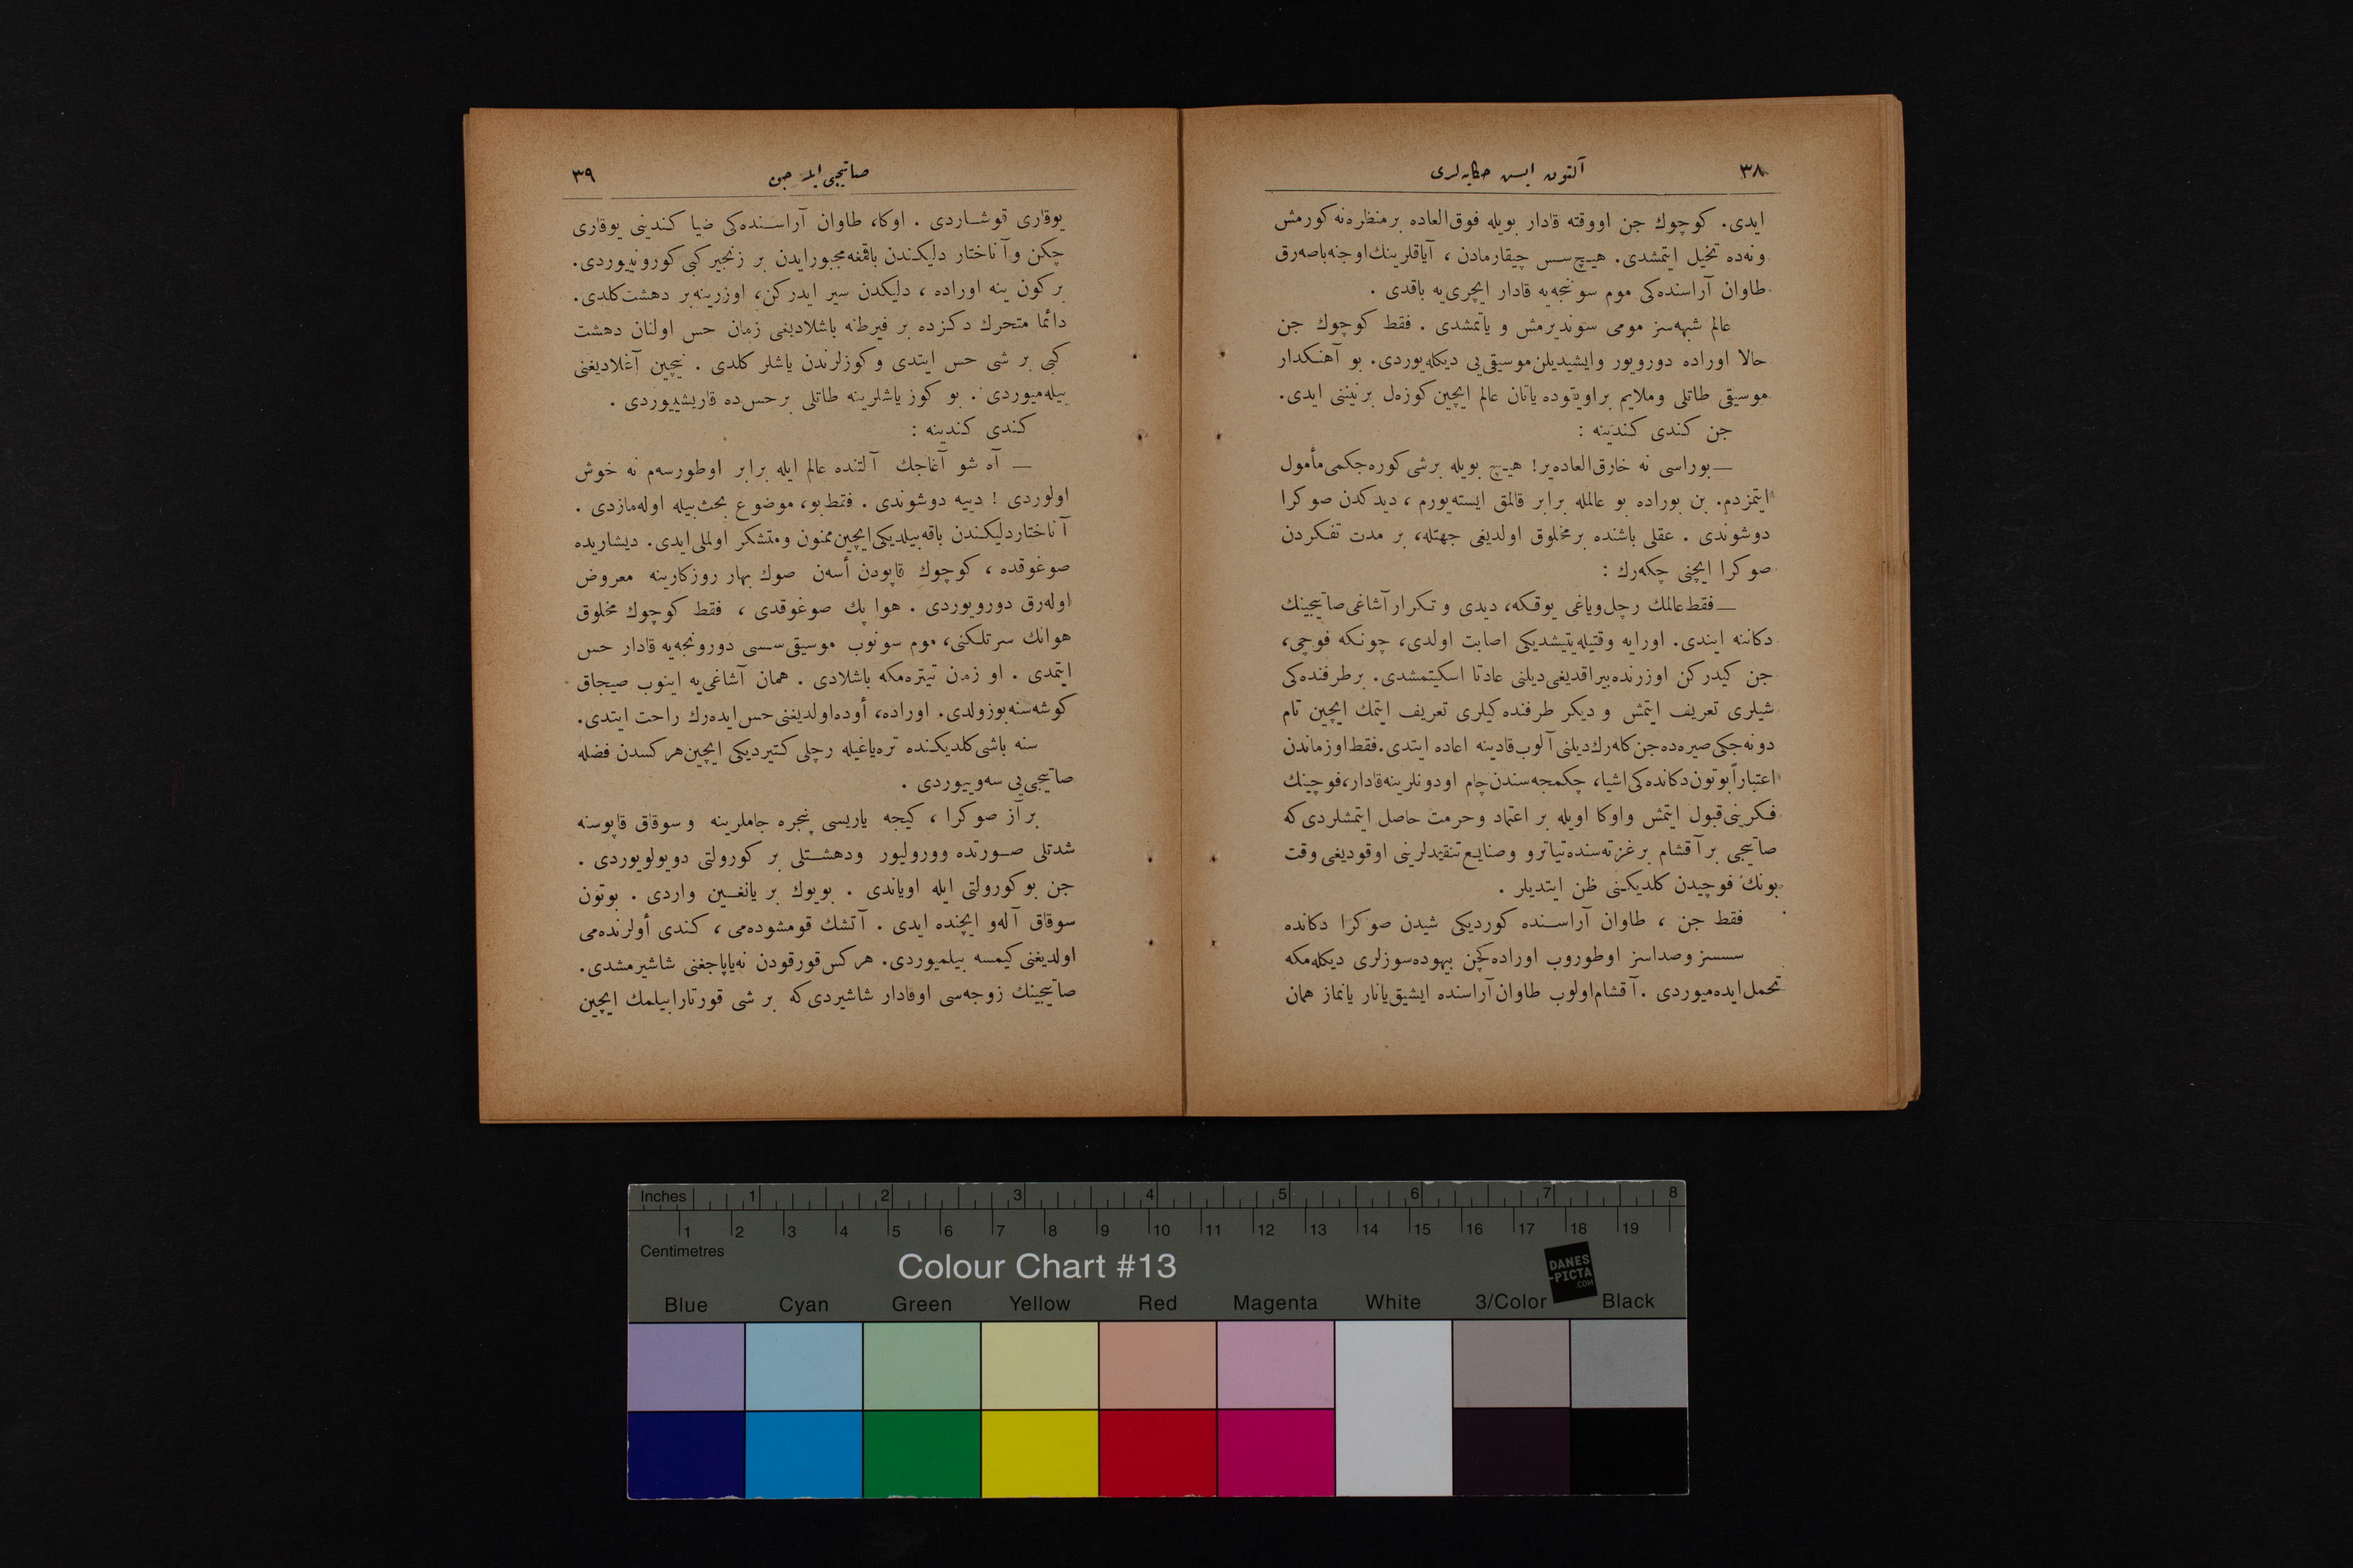 ٣٨
آلتون ایسی حکایه‌لری
ایدی. كوچوك جن اووقته قادار بویله فوق‌العاده برمنظره‌نه كورمش
ونه‌ده تخیل ایتمشدی. هیچ سس چیقارمادن ، آیاقلرینك‌اوجنه‌باصه‌رق
طاوان آراسنده‌كی موم سوننجه‌یه قادار ایچری‌یه باقدی .
عالم شبهه‌سز مومی سوندیرمش و یاتمشدی . فقط كوچوك جن
حالا اوراده دورویور وایشیدیلن‌موسیقی‌یی دیكله‌یوردی. بو آهنكدار
موسیقی طاتلی وملایم براویقوده یاتان عالم ایچین كوزه‌ل برنیننی ایدی.
جن كندی كندینه :
— بوراسی نه خارق‌العاده‌یر! هیچ بویله برشی كوره‌جكمی‌مأمول
ایتمزدم. بن بوراده بو عالمله برابر قالمق ایسته‌یورم ، دیدكدن صوكرا
دوشوندی . عقلی باشنده برمخلوق اولدیغی جهتله، بر مدت تفكردن
صوكرا ایچنی چكه‌رك :
— فقط‌عالمك رچل‌ویاغی یوقكه، دیدی و تكرار آشاغی‌صاتیجینك
دكاننه ایندی. اورایه وقتیله‌یتیشدیكی اصابت اولدی، چونكه فوچی،
جن كیدركن اوزرنده‌بیراقدیغی‌دیلنی عادتا اسكیتمشدی. برطرفنده‌كی
شیلری تعریف ایتمش و دیكر طرفنده‌كیلری تعریف ایتمك ایچین تام
دونه‌جكی‌صیره‌ده‌جن‌كله‌رك‌دیلنی آلوب‌قادینه اعاده ایتدی.فقط‌اوزماندن
اعتباراًبوتون‌دكانده‌كی‌اشیا، چكمجه‌سندن‌چام اودونلرینه‌قادار،فوچینك
فكرینی‌قبول ایتمش واوكا اویله بر اعتماد وحرمت حاصل ایتمشلردی‌كه
صاتیجی برآقشام برغزته‌سنده‌تیاترو وصنایع‌تنقیدلرینی اوقودیغی وقت
بونك فوچیدن كلدیكنی ظن ایتدیلر .
فقط جن ، طاوان آراسنده كوردیكی شیدن صوكرا دكانده
سسسز وصداسز اوطوروب اوراده‌كچن بیهوده‌سوزلری دیكله‌مكه
تحمل‌ایده‌میوردی . آقشام‌اولوب طاوان‌آراسنده ایشیق‌یانار یانماز همان
٣٩
صاتیجی ایله جن
یوقاری قوشاردی . اوكا، طاوان آراسنده‌كی ضیا كندینی یوقاری
چكن وآناختار دلیكندن باقمغه‌مجبورایدن بر زنجیر كبی كورونییوردی.
بركون ینه اوراده ، دلیكدن سیر ایدركن، اوزرینه‌بر دهشت‌كلدی.
دائما متحرك دكزده بر فیرطنه باشلادیغی زمان حس اولنان دهشت
كبی بر شی حس ایتدی وكوزلرندن یاشلر كلدی . نیچین آغلادیغنی
بیله‌میوردی . بو كوز یاشلرینه طاتلی برحس‌ده قاریشییوردی .
كندی كندینه :
— آه شو آغاجك آلتنده عالم ایله برابر اوطورسه‌م نه خوش
اولوردی ! دییه دوشوندی . فقط‌بو، موضوع بحث‌بیله اوله‌مازدی .
آناختاردلیكندن باقه‌بیلدیكی‌ایچین‌ممنون ومتشكر اولملی‌ایدی. دیشاریده
صوغوقده ، كوچوك قاپودن أسه‌ن صوك بهار روزكارینه معروض
اوله‌رق دورویوردی . هوا پك صوغوقدی ، فقط كوچوك مخلوق
هوانك سرتلكنی، موم سونوب موسیقی‌سسی دورونجه‌یه قادار حس
ایتمدی . او زمان تیتره‌مكه باشلادی . همان آشاغی‌یه اینوب صیجاق
كوشه‌سنه‌بوزولدی. اوراده، أوده‌اولدیغنی‌حس‌ایده‌رك راحت ایتدی.
سنه باشی‌كلدیكنده تره‌یاغیله رچلی كتیردیكی ایچین‌هركسدن فضله
صاتیجی‌یی سه‌وییوردی .
برآز صوكرا ، كیجه یاریسی پنجره جاملرینه وسوقاق قاپوسنه
شدتلی صورتده وورولیور ودهشتلی بر كورولتی دویولویوردی .
جن بوكورولتی ایله اویاندی . بویوك بر یانغین واردی . بوتون
سوقاق آله‌و ایچنده ایدی . آتشك قومشوده‌می ، كندی أولرنده‌می
اولدیغنی‌كیمسه بیلمیوردی. هركس‌قورقودن نه‌یاپاجغنی شاشیرمشدی.
صاتیجینك زوجه‌سی اوقادار شاشیردی‌كه بر شی قورتارابیلمك ایچین
Inches 1 2 3 4 5 6 7 8
1 2 3 4 5 6 7 8 9 10 11 12 13 14 15 16 17 18 19
Centimetres
Colour Chart #13
DANES
-PICTA
.COM
Blue Cyan Green Yellow Red Magenta White 3/Color Black